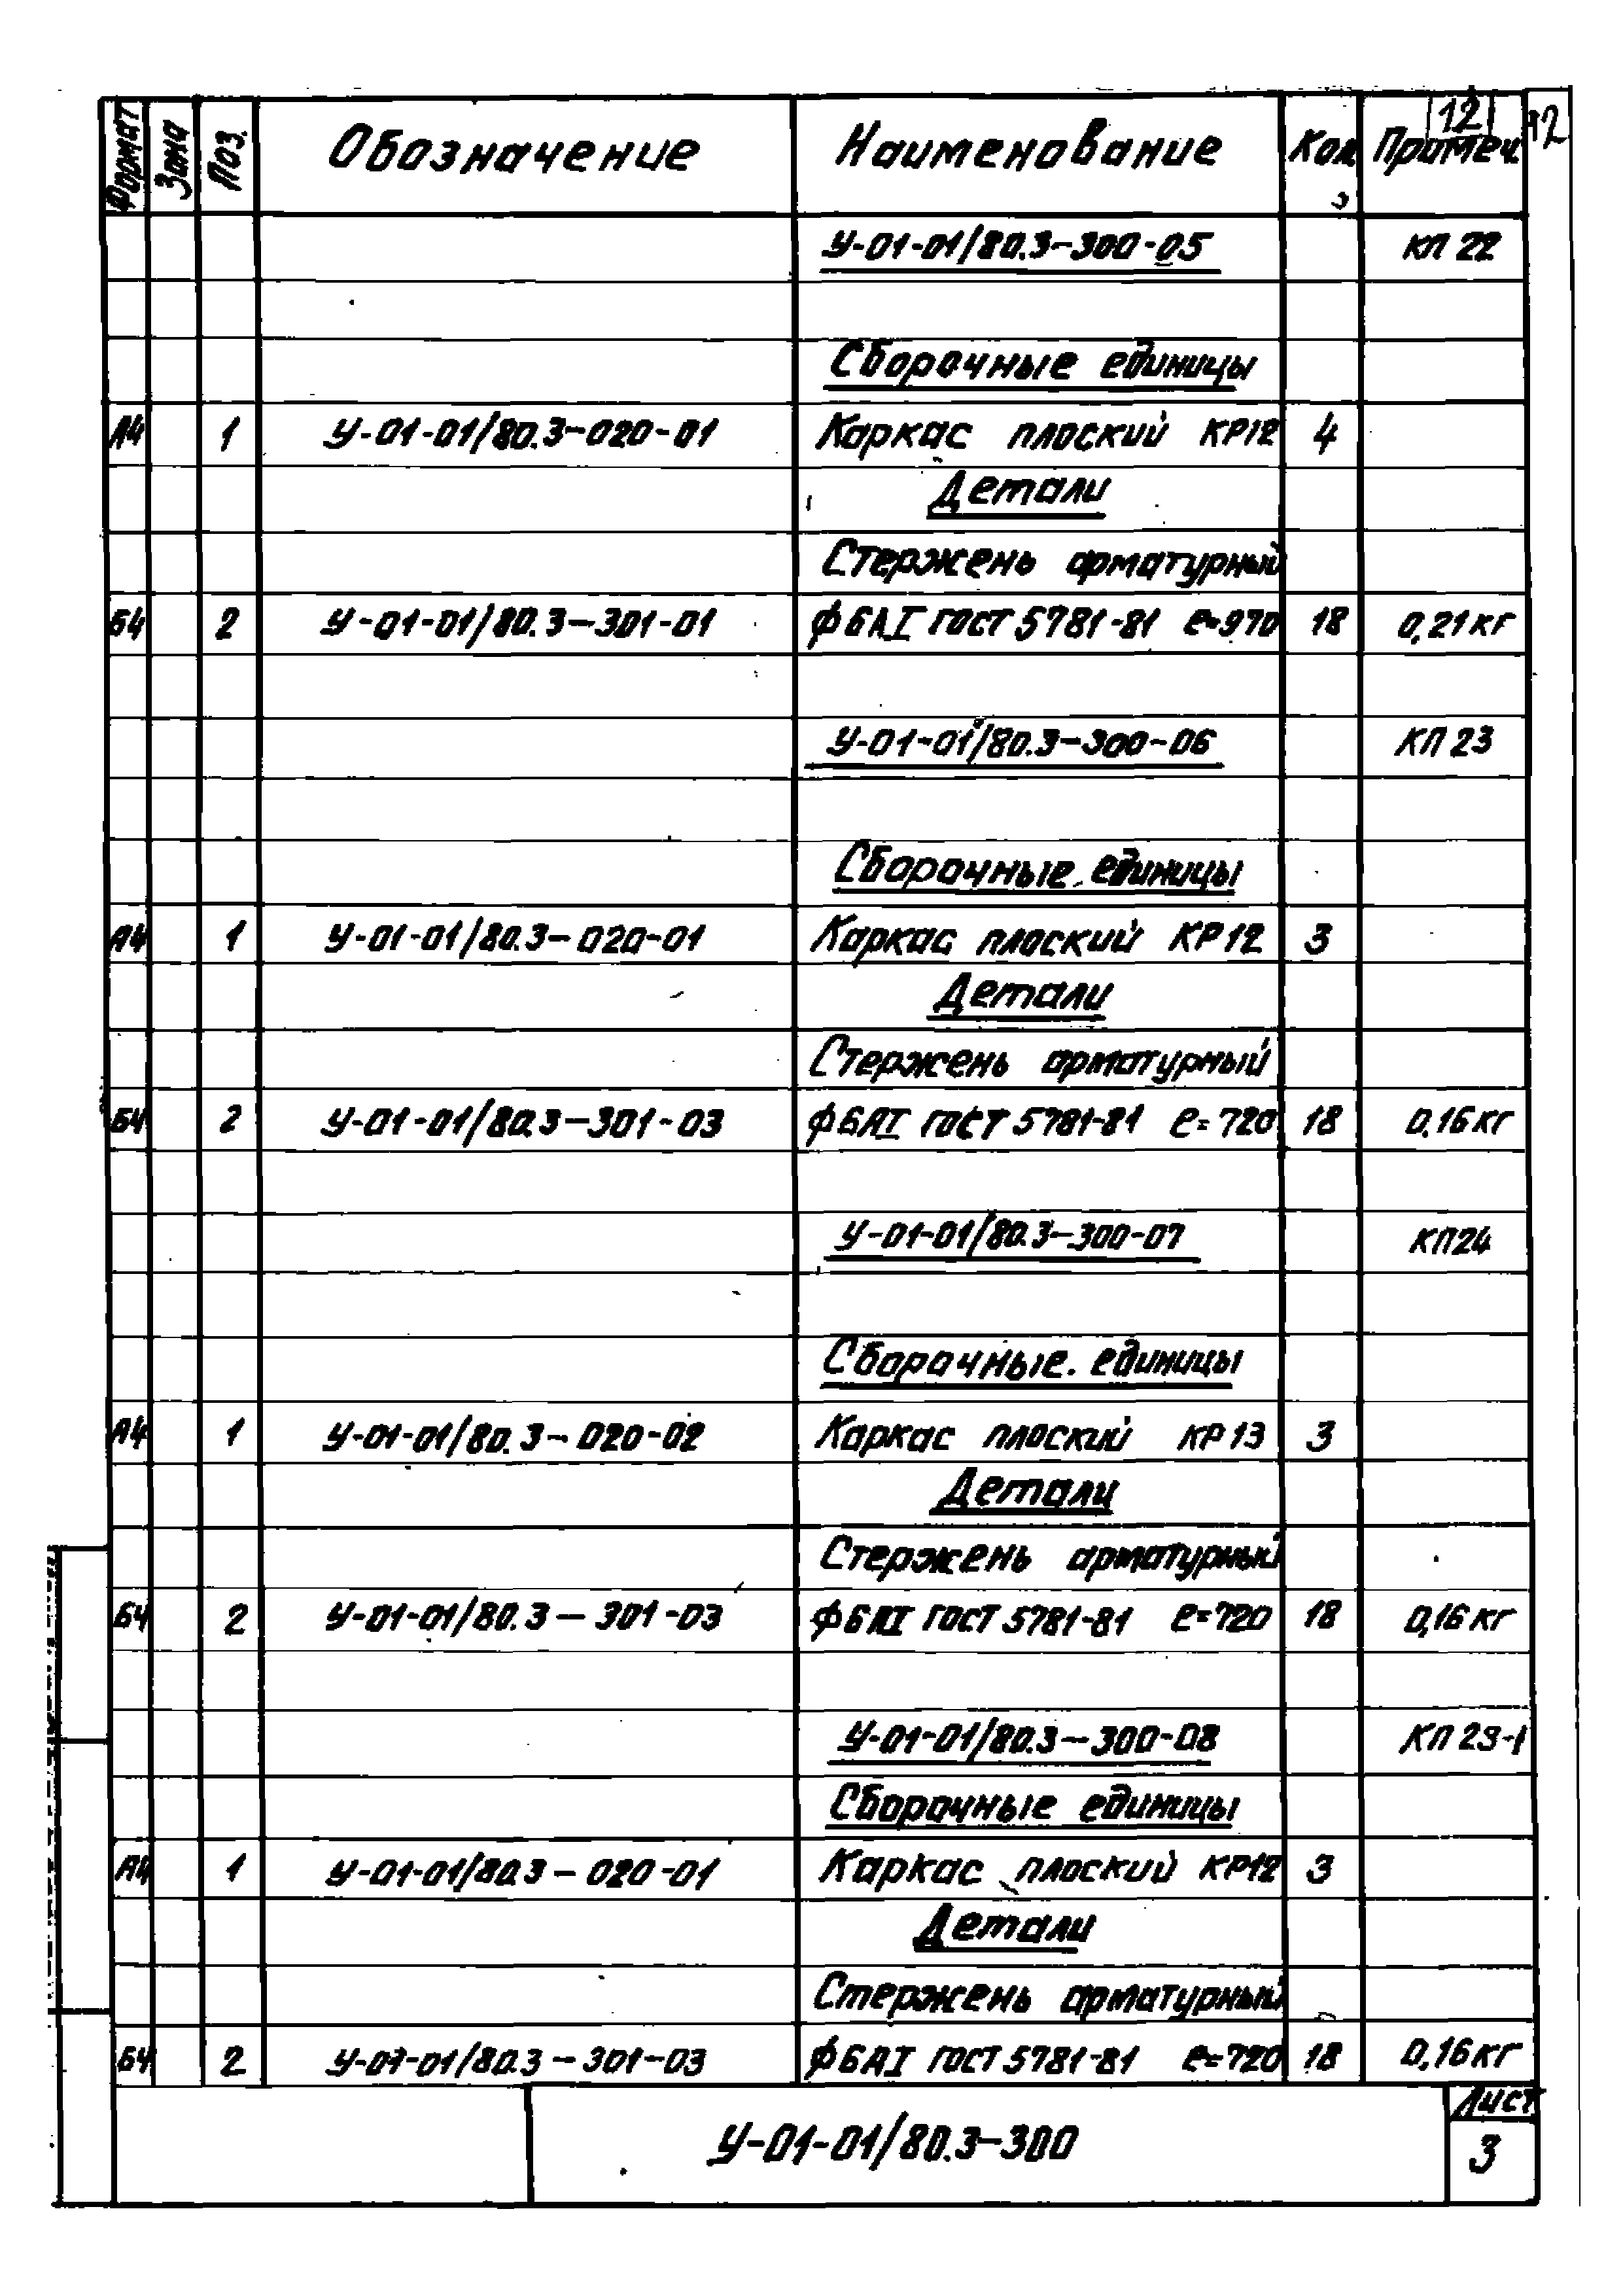 12
12
Формат Зона Поз. Обозначение Наименование Кол. Примеч.
У-01-01/80.3-300-05 КП 22
Сборочные единицы
А4 1 У-01-01/80.3-020-01 Каркас плоский КР12 4
Детали
Стержень арматурный
Б4 2 У-01-01/80.3-301-01 Ф6АI ГОСТ 5781-81 ℓ=970 18 0,21 кг
У-01-01/80.3-300-06 КП 23
Сборочные единицы
А4 1 У-01-01/80.3-020-01 Каркас плоский КР12 3
Детали
Стержень арматурный
Б4 2 У-01-01/80.3-301-03 Ф6АI ГОСТ 5781-81 ℓ=720 18 0,16 кг
У-01-01/80.3-300-07 КП24
Сборочные единицы
А4 1 У-01-01/80.3-020-02 Каркас плоский КР13 3
Детали
Стержень арматурный
Б4 2 У-01-01/80.3-301-03 Ф6АI ГОСТ 5781-81 ℓ=720 18 0,16 кг
У-01-01/80.3-300-08 КП 23-1
Сборочные единицы
А4 1 У-01-01/80.3-020-01 Каркас плоский КР12 3
Детали
Стержень арматурный
Б4 2 У-01-01/80.3-301-03 Ф6АI ГОСТ 5781-81 ℓ=720 18 0,16 кг
У-01-01/80.3-300
Лист
3